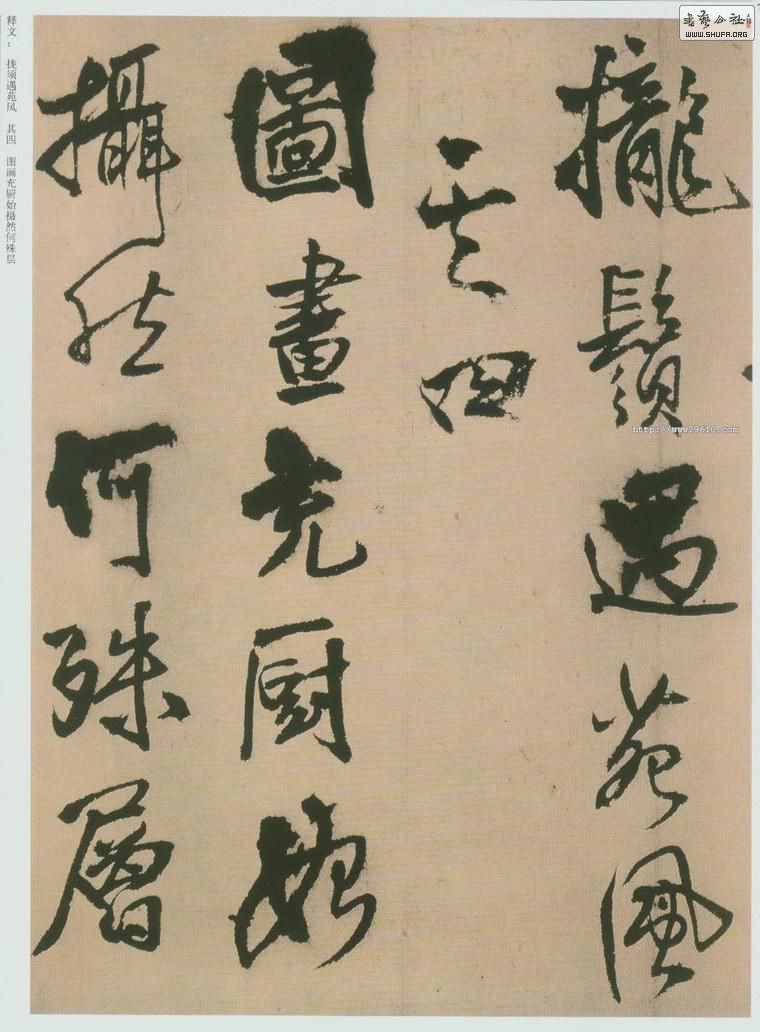 攏鬚遇苑風
其四
圖畫充厨始
攝然何殊層
释文： 拢须遇苑风 其四 图画充厨始摄然何殊层
書藝公社
WWW.SHUFA.ORG
http://www.9610.com